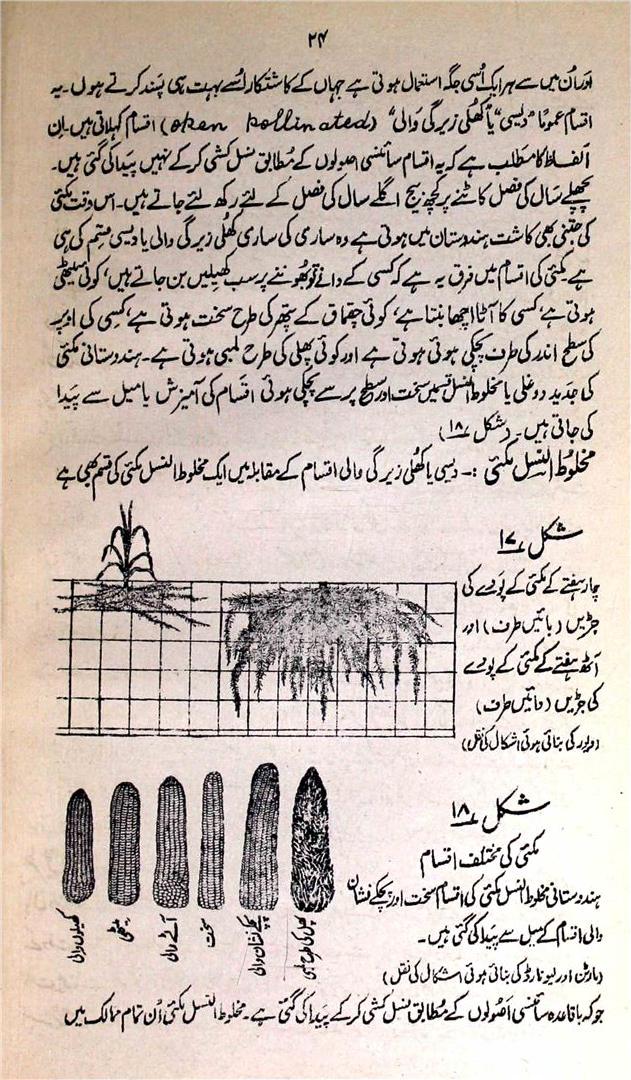 ۲۴
اور اُن میں سے ہر ایک اُسی جگہ استعمال ہوتی ہے جہاں کے کاشتکار اُسے بہت ہی پسند کرتے ہوں۔ یہ
اقسام عموماً "دیسی" یا "کھلی زیرگی والی" (oken pollinated) اقسام کہلاتی ہیں۔ اِن
الفاظ کا مطلب ہے کہ یہ اقسام سائنسی اصولوں کے مُطابق نسل کشی کر کے نہیں پیدا کی گئی ہیں۔
پچھلے سال کی فصل کاٹنے پر کچھ بیج اگلے سال کی فصل کے لئے رکھ لئے جاتے ہیں۔ اس وقت مکئی
کی جتنی بھی کاشت ہندوستان میں ہوتی ہے وہ ساری کی ساری کھُلی زیرگی والی یا دیسی قسم کی ہی
ہے۔ مکئی کی اقسام میں فرق یہ ہے کہ کسی کے دانے تو بھُوننے پر سب کھیلیں بن جاتے ہیں، کوئی میٹھی
ہوتی ہے، کسی کا آٹا اچھا بنتا ہے، کوئی چقماق کے پتھر کی طرح سخت ہوتی ہے، کسی کی اوپر
کی سطح اندر کی طرف پچکی ہوئی ہوتی ہے اور کوئی پھلی کی طرح لمبی ہوتی ہے۔ ہندوستانی مکئی
کی جدید دوغلی یا مخلوط النسل قسمیں سخت اور سطح پر سے پچکی ہوئی اقسام کی آمیزش یا میل سے پیدا
کی جاتی ہیں۔ (شکل ۱۸)
مخلُوط النسل مکئی :۔ دیسی یا کھُلی زیرگی والی اقسام کے مقابلہ میں ایک مخلوط النسل مکئی کی قسم بھی ہے
شکل ۱۷
چار ہفتے کے مکئی کے پودے کی
جڑیں (بائیں طرف) اور
آٹھ ہفتے کے مکئی کے پودے
کی جڑیں (دائیں طرف)
(ویور کی بنائی ہوئی اشکال کی نقل)
شکل ۱۸
مکئی کی مختلف اقسام
ہندوستانی مخلوط النسل مکئی کی اقسام سخت اور پچکے نشان
والی اقسام کے میل سے پیدا کی گئی ہیں۔
(مارٹن اور لیونارڈ کی بنائی ہوئی اشکال کی نقل)
کھیلوں والی
میٹھی
آٹے والی
سخت
پچکے نشان والی
پھلی کی طرح لمبی
جو کہ باقاعدہ سائنسی اصُولوں کے مُطابق نسل کشی کر کے پیدا کی گئی ہے۔ مخلوط النسل مکئی اُن تمام ممالک میں